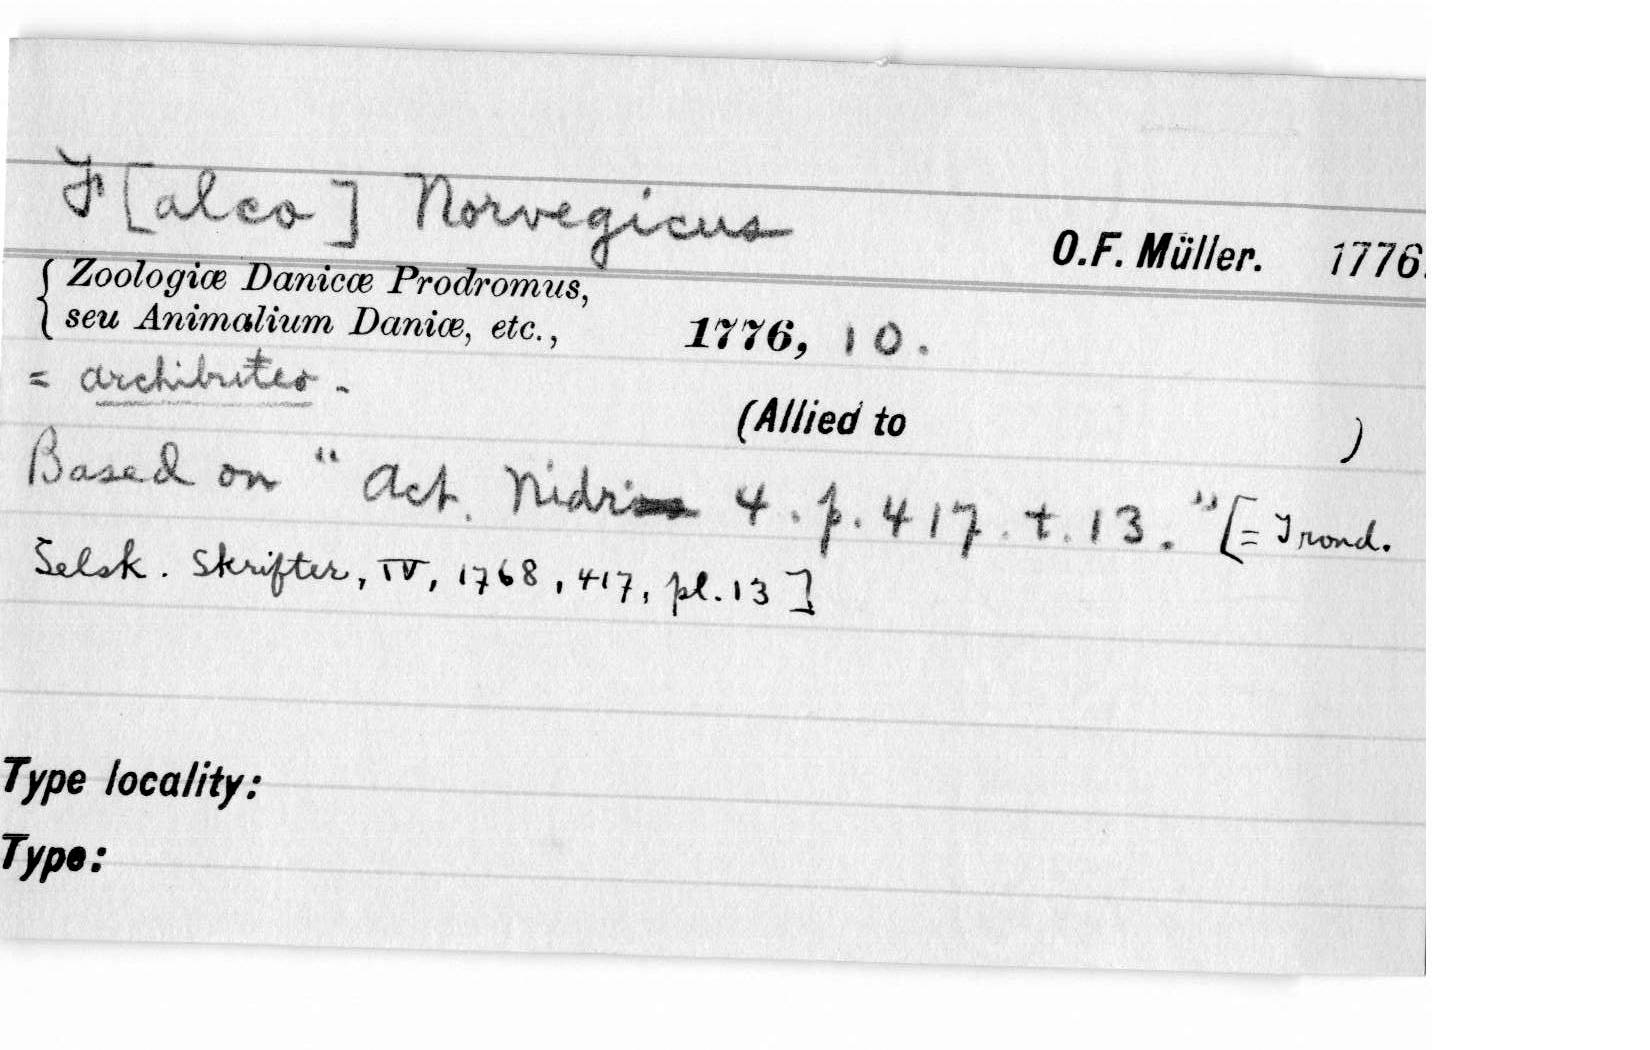 F[alco] Norvegicus
O.F. Müller. 1776.
Zoologiæ Danicæ Prodromus,
seu Animalium Daniæ, etc., 1776, 10.
= archibuteo.
(Allied to )
Based on "Act. Nidr 4. p. 417. t. 13." [= Trond.
Selsk. Skrifter, IV, 1768, 417, pl. 13]
Type locality:
Type: